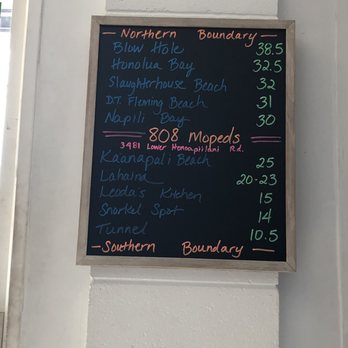 — Northern Boundary —
Blow Hole 38.5
Honolua Bay 32.5
Slaughterhouse Beach 32
D.T. Fleming Beach 31
Napili Bay 30
808 Mopeds
3481 Lower Honoapiilani Rd.
Kaanapali Beach 25
Lahaina 20-23
Leoda's Kitchen 15
Snorkel Spot 14
Tunnel 10.5
— Southern Boundary —